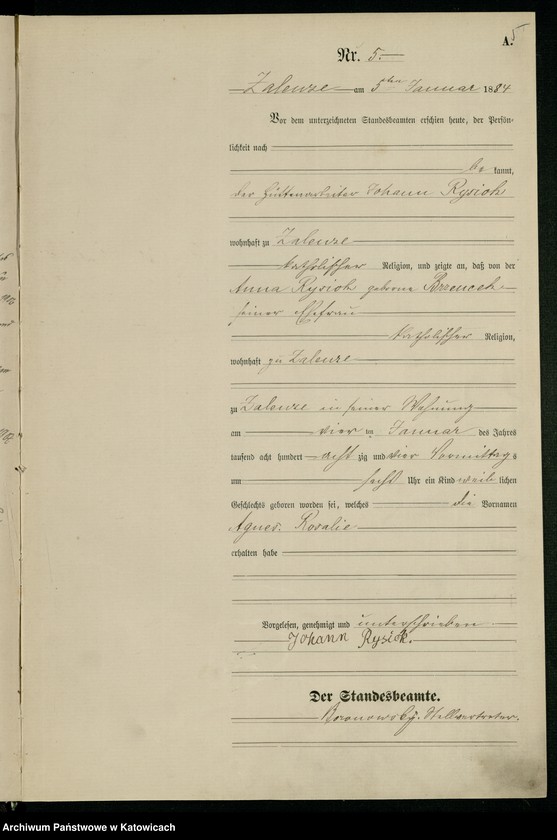 A.
5
Nr. 5.
Zalenze am 5ten Januar 1884
Vor dem unterzeichneten Standesbeamten erschien heute, der Persön-
lichkeit nach
be kannt,
der Hüttenarbeiter Johann Rysiok
wohnhaft zu Zalenze
katholischer Religion, und zeigte an, daß von der
Anna Rysiok geborne
seiner Ehefrau
katholischer Religion,
wohnhaft zu Zalenze
zu Zalenze in seiner Wohnung
am vier ten Januar des Jahres
tausend acht hundert acht zig und vier Vormittags
um sechs Uhr ein Kind weib lichen
Geschlechts geboren worden sei, welches die Vornamen
Agnes Rosalie
erhalten habe
Vorgelesen, genehmigt und unterschrieben
Johann Rysiok.
Der Standesbeamte.
Stellvertreter.
Archiwum Państwowe w Katowicach